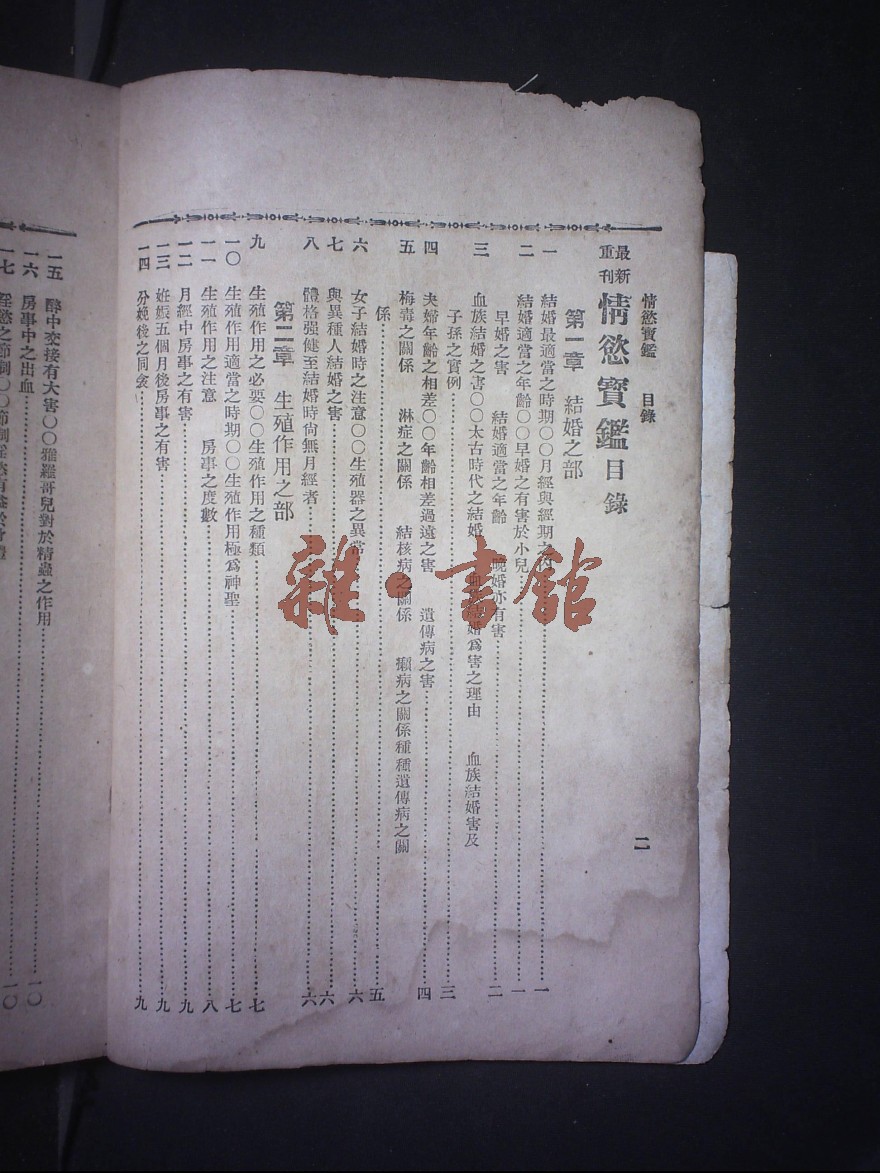 情慾寶鑑 目錄 二
最新重刊 情慾寶鑑目錄
第一章 結婚之部
一 結婚最適當之時期〇〇月經與經期之………一
二 結婚適當之年齡〇〇早婚之有害於小兒………一
早婚之害 結婚適當之年齡 晚婚亦有害………二
三 血族結婚之害〇〇太古時代之結婚 血族結婚爲害之理由 血族結婚害及
子孫之實例………三
四 夫婦年齡之相差〇〇年齡相差過遠之害 遺傳病之害………四
五 梅毒之關係 淋症之關係 結核病之關係 癩病之關係種種遺傳病之關
係………五
六 女子結婚時之注意〇〇生殖器之異常………六
七 與異種人結婚之害………六
八 體格强健至結婚時尙無月經者………六
第二章 生殖作用之部
九 生殖作用之必要〇〇生殖作用之種類………七
一〇 生殖作用適當之時期〇〇生殖作用極爲神聖………七
一一 生殖作用之注意 房事之度數………八
一二 月經中房事之有害………九
一三 姙娠五個月後房事之有害………九
一四 分娩後之同衾………九
一五 醉中交接有大害〇〇雅羅哥兒對於精蟲之作用
一六 房事中之出血………一〇
一七 淫慾之節制〇〇節制淫慾有益於身體………一〇
雜·書館